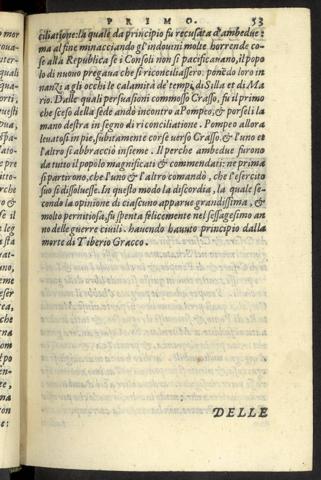 PRIMO. 53
ciliatione: la quale da principio fu recusata d'ambedue:
ma al fine minacciando gl'indouini molte horrende co-
se alla Republica se i Consoli non si pacificauano, il popo
lo di nuouo pregaua che si riconciliassero: ponēdo loro in
nanzi a gli occhi le calamità de' tempi di Silla et di Ma
rio. Dalle quali persuasioni commosso Crasso, fu il primo
che sceso della sede andò incontro a Pompeo, & porseli la
mano destra in segno di riconciliatione. Pompeo allora
leuatosi in pie, subitamente corse uerso Crasso, & l'uno et
l'altro si abbracciò insieme. Il perche ambedue furono
da tutto il popolo magnificati & commendati: ne prima
si partirono, che l'uno & l'altro comandò, che l'esercito
suo si dissoluesse. In questo modo la discordia, la quale se-
condo la opinione di ciascuno apparue grandissima, &
molto pernitiosa, fu spenta felicemente nel sessagesimo an
no delle guerre ciuili. hauendo hauuto principio dalla
morte di Tiberio Gracco.
DELLE